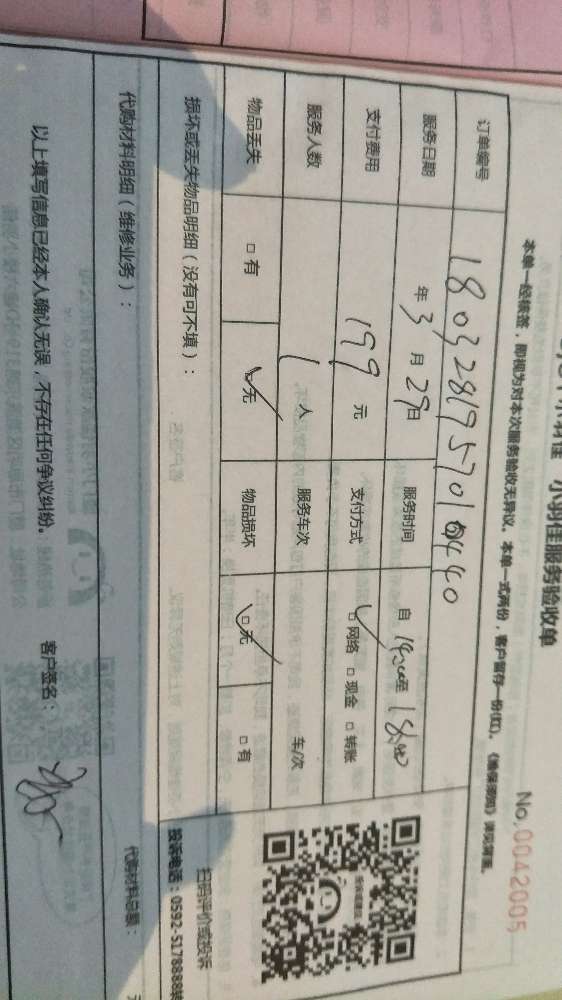 小羽佳服务验收单
No.0042005
本单一经核签，即视为对本次服务验收无异议。本单一式两份，客户留存一份(红)。
订单编号 1803281957010440
服务日期 年3月29日 服务时间 自14:00至18:00
支付费用 199元 支付方式 网络 现金 转账
服务人数 1人 服务车次 车/次
物品丢失 有 无 物品损坏 无 有
损坏或丢失物品明细（没有可不填）：
扫码评价或投诉
投诉电话：0592-5178888转
代购材料明细（维修业务）：
代购材料总额： 元
以上填写信息已经本人确认无误，不存在任何争议纠纷。 客户签名：